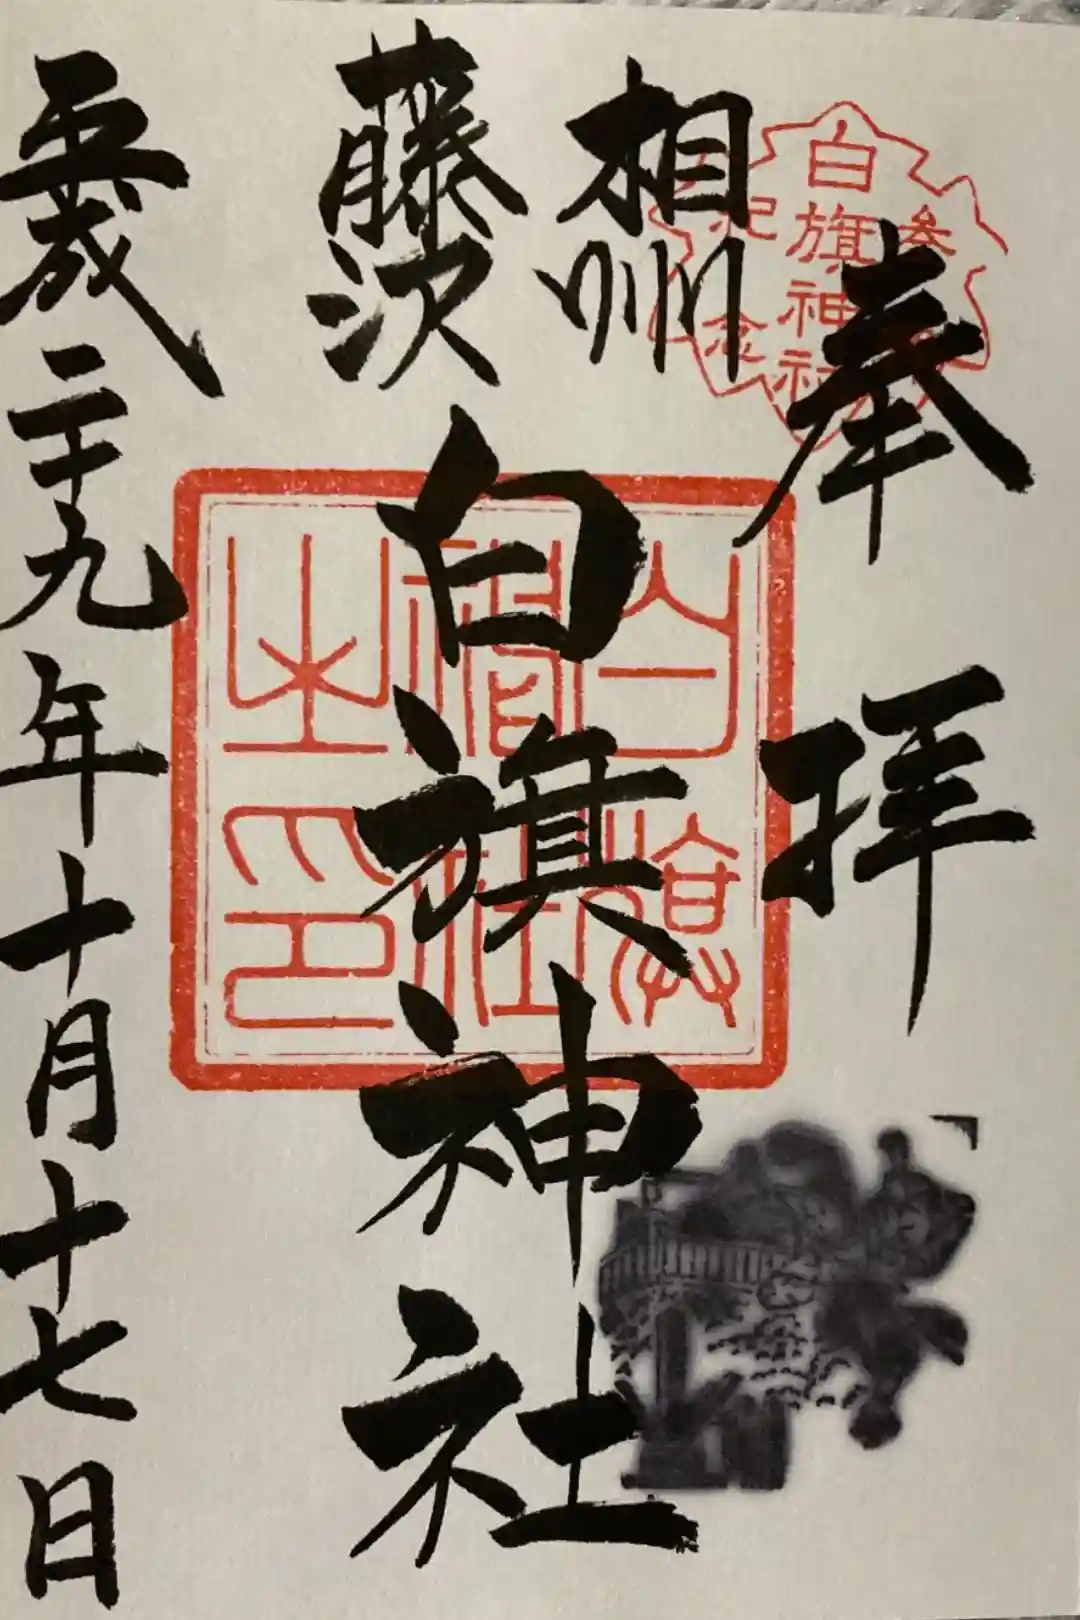 奉拝
参拝
白旗神社
記念
相州
藤沢
白旗神社
白旗
神社
之印
平成二十九年十月十七日